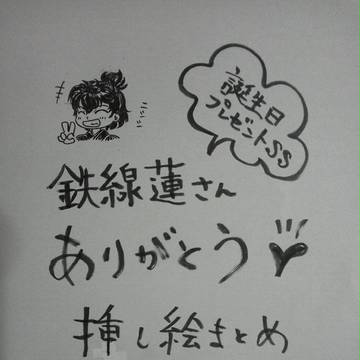 誕生日
プレゼントSS
鉄線蓮さん
ありがとう
挿し絵まとめ